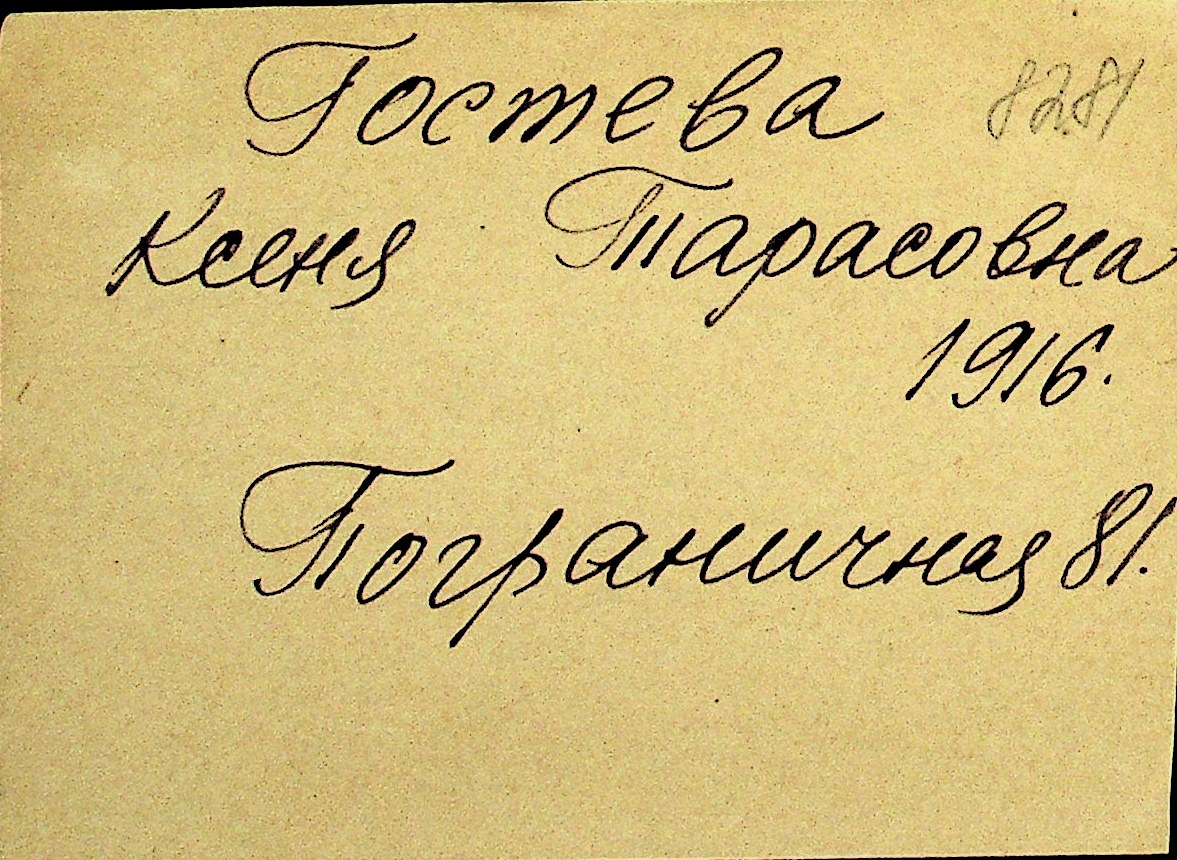 Гостева 8281
Ксеня Тарасовна
1916.
Пограничная 81.